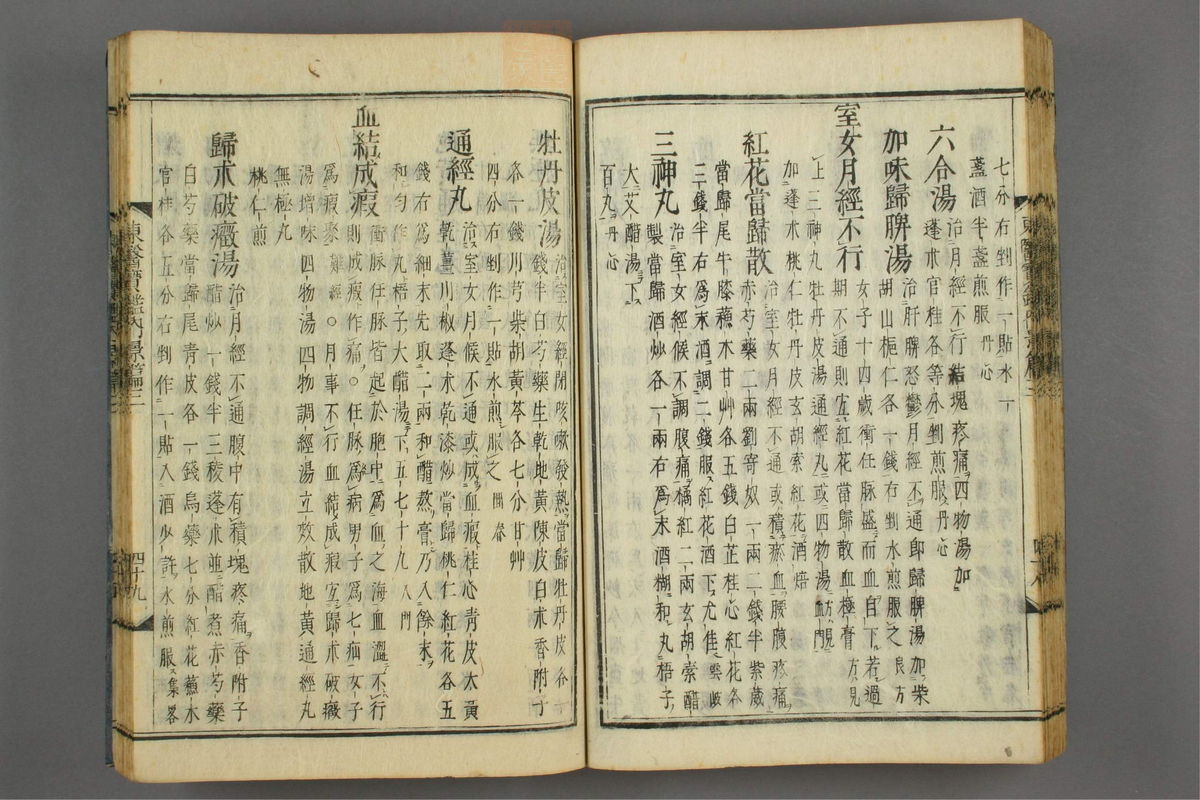 七分右剉作一貼水一
盞酒半盞煎服丹心
六合湯治月經不行結塊疼痛四物湯加
蓬朮官桂各等分剉煎服丹心
加味歸脾湯治肝脾怒鬱月經不通卽歸脾湯加柴
胡山梔仁各一錢右剉水煎服之良方
室女月經不行女子十四歲衝任脉盛而血自下若過
期不通則宜紅花當歸散血極膏方見
上三神丸牡丹皮湯通經丸或四物湯
加蓬朮桃仁牡丹皮玄胡索紅花酒焙
紅花當歸散治室女月經不通或積瘀血腰腹疼痛
赤芍藥二兩劉寄奴一兩二錢半紫葳
當歸尾牛膝蘇木甘艸各五錢白芷桂心紅花各
二錢半右爲末酒調二錢服紅花酒下尤佳雲岐
三神丸治室女經候不調腹痛橘紅二兩玄胡索醋
製當歸酒炒各一兩右爲末酒糊和丸梧子
大艾醋湯下
百丸丹心
牡丹皮湯治室女經閉咳嗽發熱當歸牡丹皮各
一錢半白芍藥生乾地黃陳皮白朮香附子
各一錢川芎柴胡黃芩各七分甘艸
四分右剉作一貼水煎服之回春
通經丸治室女月候不通或成血瘕桂心青皮大黃
乾薑川椒蓬朮乾漆炒當歸桃仁紅花各五
錢右爲細末先取二兩和醋熬膏乃入餘末
和勻作丸梧子大醋湯下五七十丸入門
血結成瘕衝脉任脉皆起於胞中爲血之海血澁不行
則成瘕作痛○任脉爲病男子爲七疝女子
爲瘕聚難經○月事不行血結成瘕宜歸朮破癥
湯增味四物湯四物調經湯立效散地黃通經丸
無極丸
桃仁煎
歸朮破癥湯治月經不通腹中有積塊疼痛香附子
醋炒一錢半三稜蓬朮並醋煮赤芍藥
白芍藥當歸尾青皮各一錢烏藥七分紅花蘇木
官桂各五分右剉作一貼入酒少許水煎服集畧
四十九